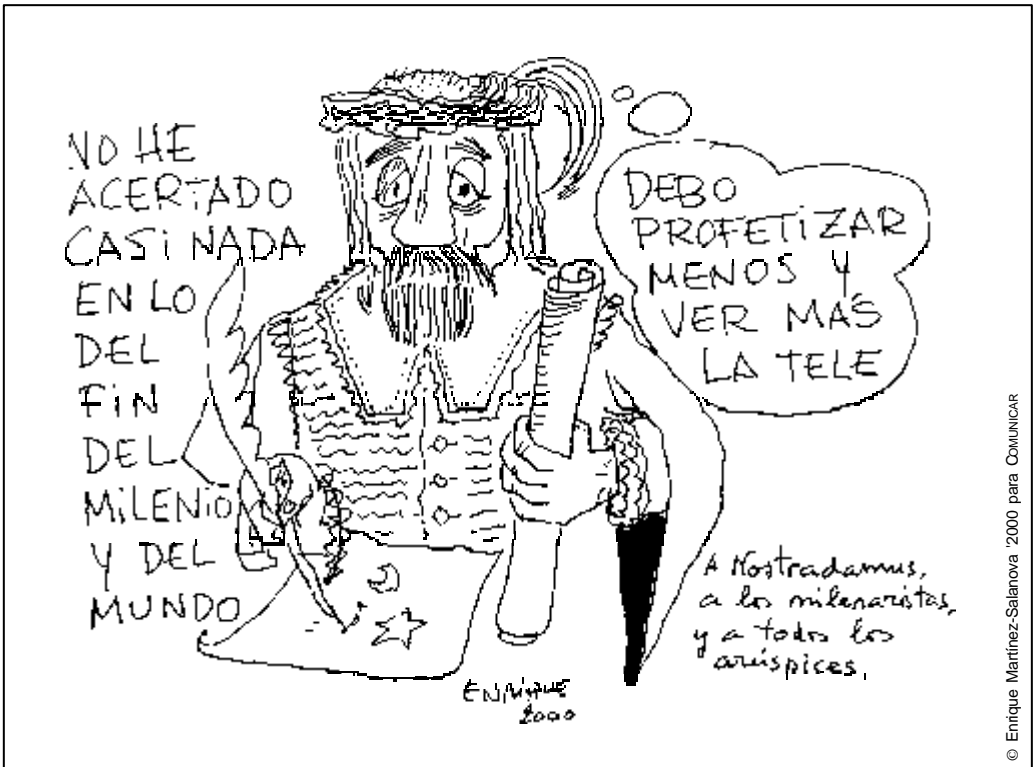 NO HE
ACERTADO
CASI NADA
EN LO
DEL
FIN
DEL
MILENIO
Y DEL
MUNDO
DEBO
PROFETIZAR
MENOS Y
VER MÁS
LA TELE
A Nostradamus,
a los milenaristas,
y a todos los
arúspices.
ENRIQUE
2000
© Enrique Martínez-Salanova '2000 para COMUNICAR